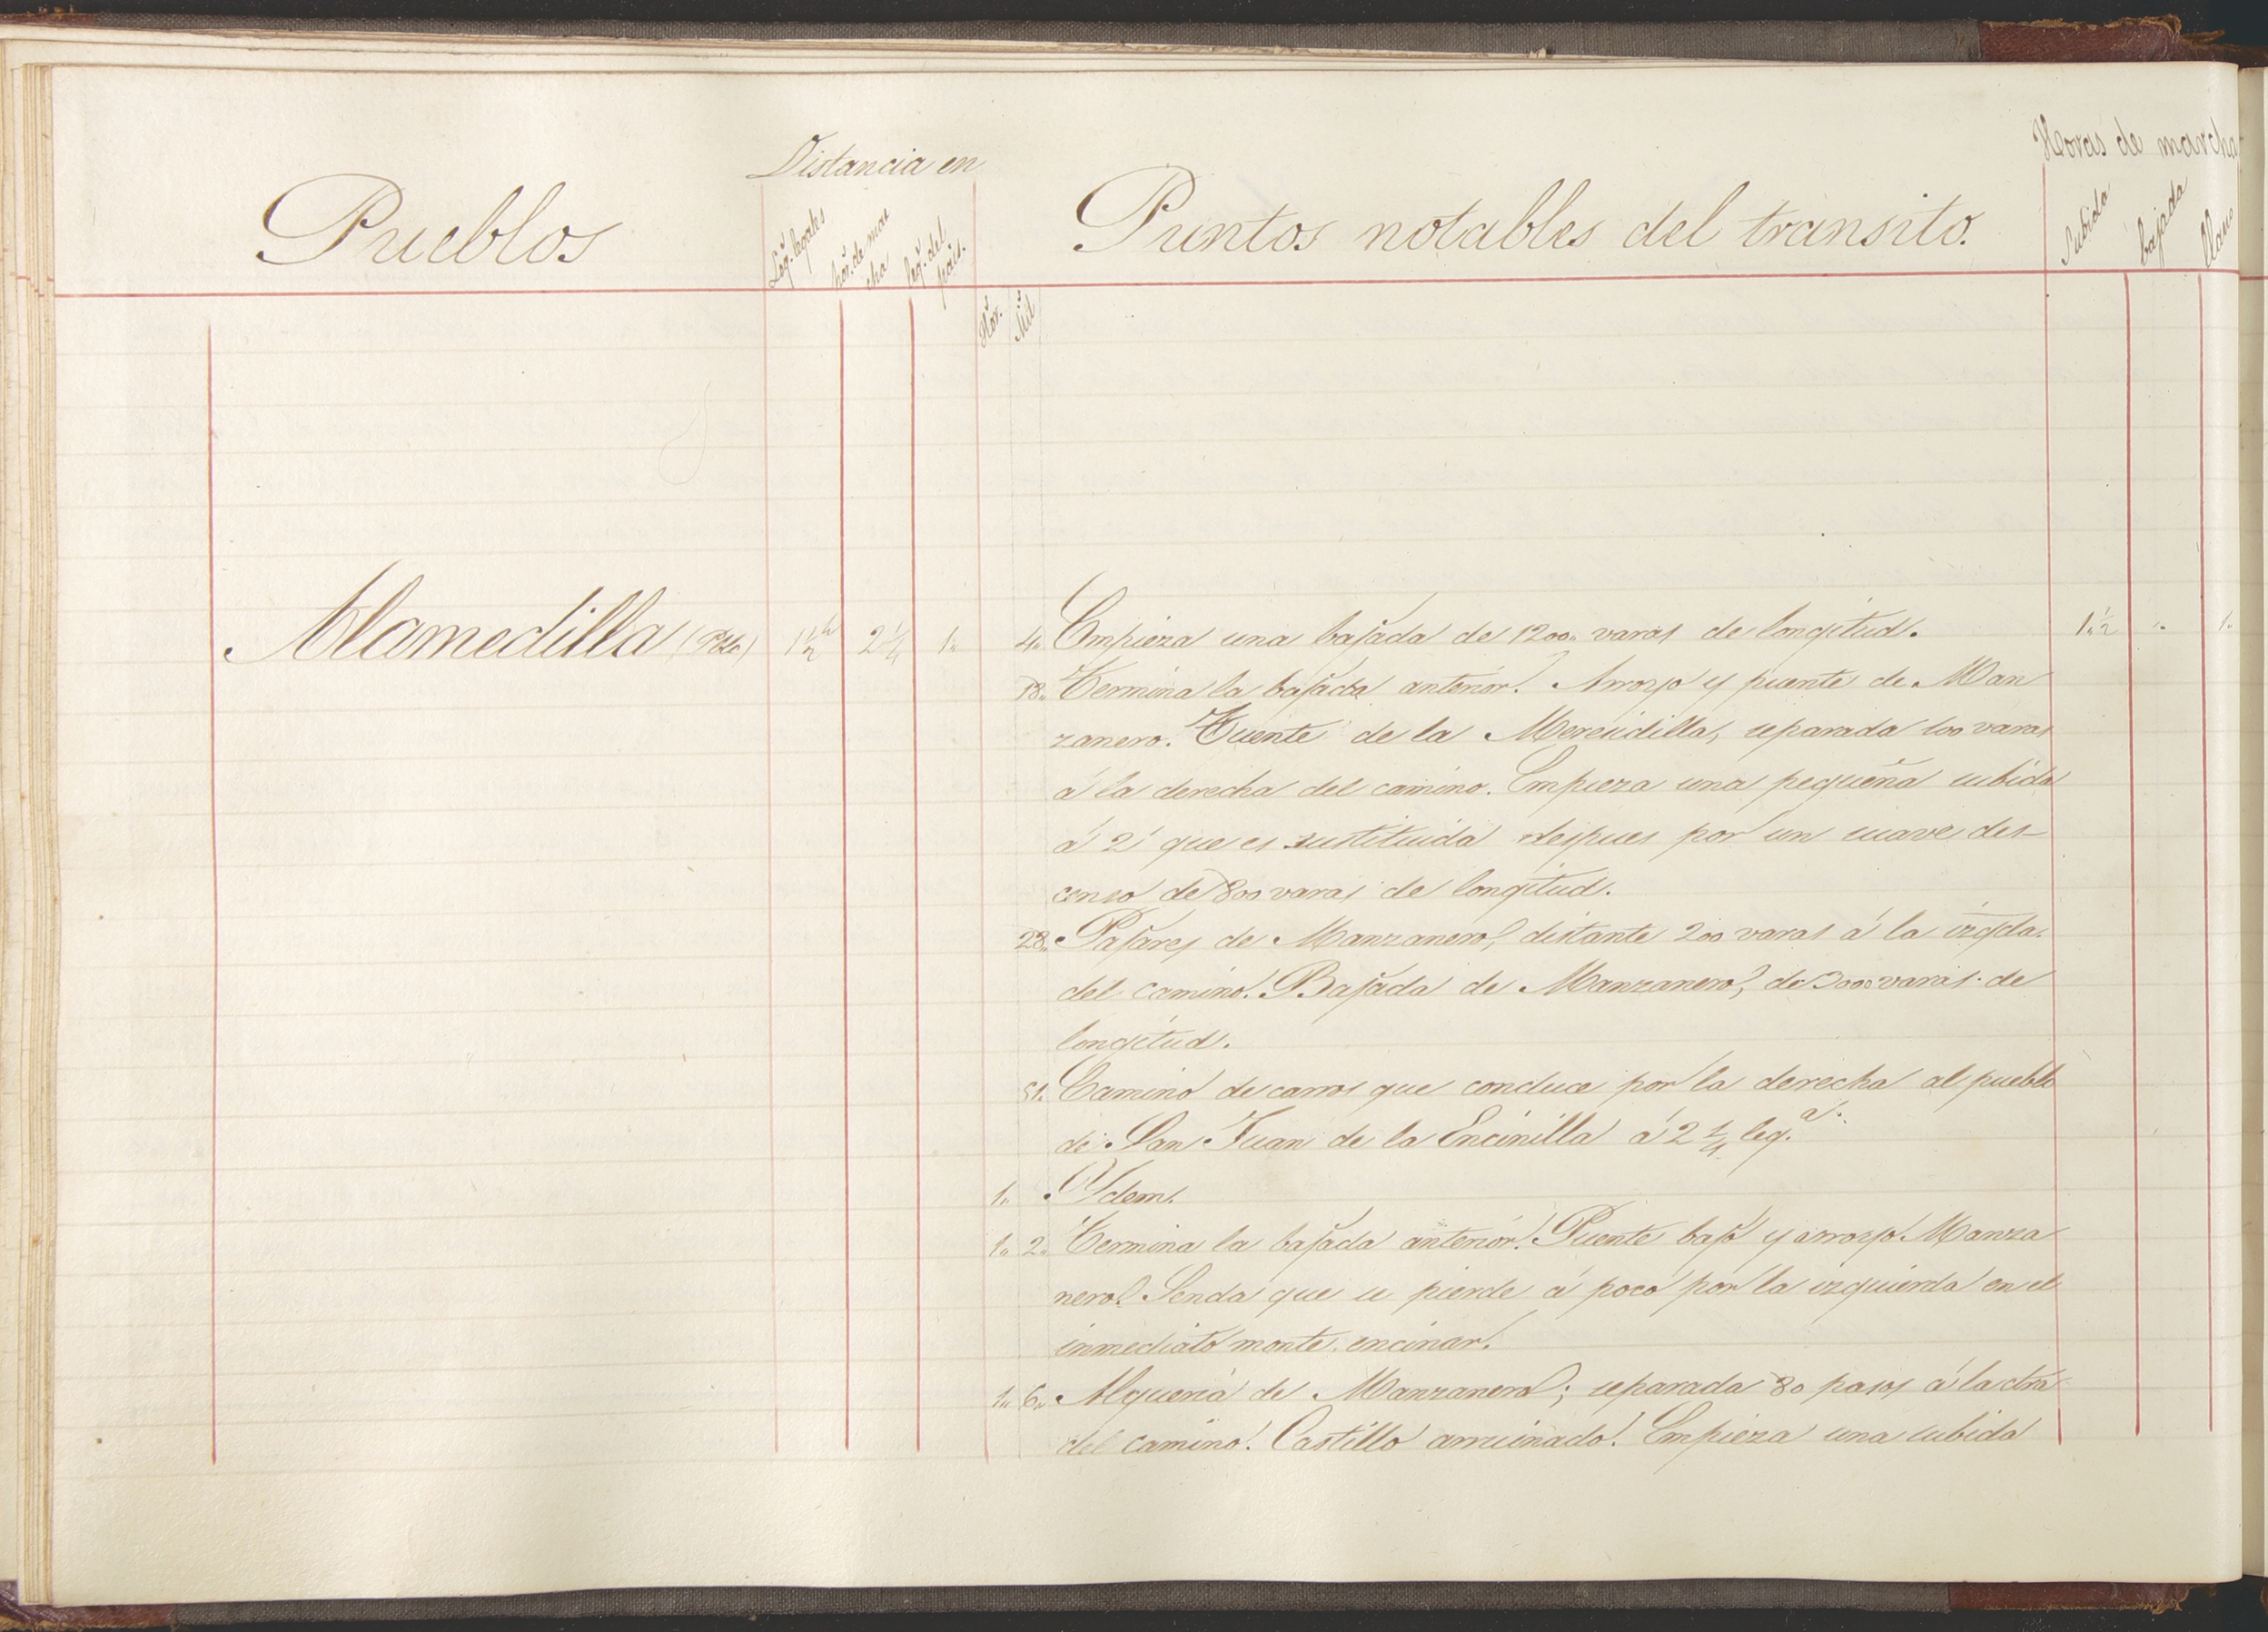 Distancia en
Horas de marcha
Pueblos
Leg.s legales
hor.s de mar
cha
leg.s del
pais.
Puntos notables del transito.
Subida
bajada
llano
Hor.s
Mil.s
Alamedilla 1 1/2 2 1/4 1" 4" Empieza una bajada de 1200" varas de longitud. 1" 1/2 " 1"
18" Termina la bajada anterior. Arroyo y puente de Man
zanero. Fuente de la Merendilla, separada 100 varas
á la derecha del camino. Empieza una pequeña subida
á 2' que es sustituida despues por un suave des-
censo de 800 varas de longitud.
28" Pajares de Manzanero, distante 200 varas á la izqda.
del camino. Bajada de Manzanero, de 3000 varas de
longitud.
51" Camino de carros que conduce por la derecha al pueblo
de San Juan de la Encinilla á 2 1/4 leg.as
1" Ydem.
1" 2" Termina la bajada anterior. Puente bajo y arroyo Manza
nero. Senda que se pierde á poco por la izquierda en el
inmediato monte encinar.
1" 6" Alqueria de Manzanero; separada 80 pasos á la dra
del camino. Castillo arruinado. Empieza una subida